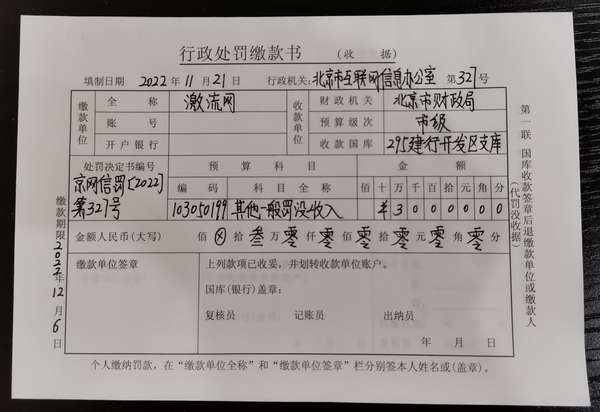 行政处罚缴款书 (收 据)
填制日期 2022 年 11 月 21 日 行政机关: 北京市互联网信息办公室 第 327 号
缴款单位 全称 激流网 收款单位 财政机关 北京市财政局
账号 预算级次 市级
开户银行 收款国库 295建行开发区支库
处罚决定书编号 预算科目 金额
京网信罚[2022]第327号 编码 科目全称 佰 十 万 千 百 拾 元 角 分
103050199 其他一般罚没收入 ¥ 3 0 0 0 0 0 0
金额人民币(大写) 佰 ⊗ 拾 叁 万 零 仟 零 佰 零 拾 零 元 零 角 零 分
缴款单位签章 上列款项已收妥,并划转收款单位账户。
国库(银行)盖章:
复核员 记账员 出纳员
年 月 日
个人缴纳罚款,在“缴款单位全称”和“缴款单位签章”栏分别签本人姓名或(盖章)。
缴款期限 2022年 12 月 6 日
第一联 国库收款签章后退缴款单位或缴款人
(代罚没收据)